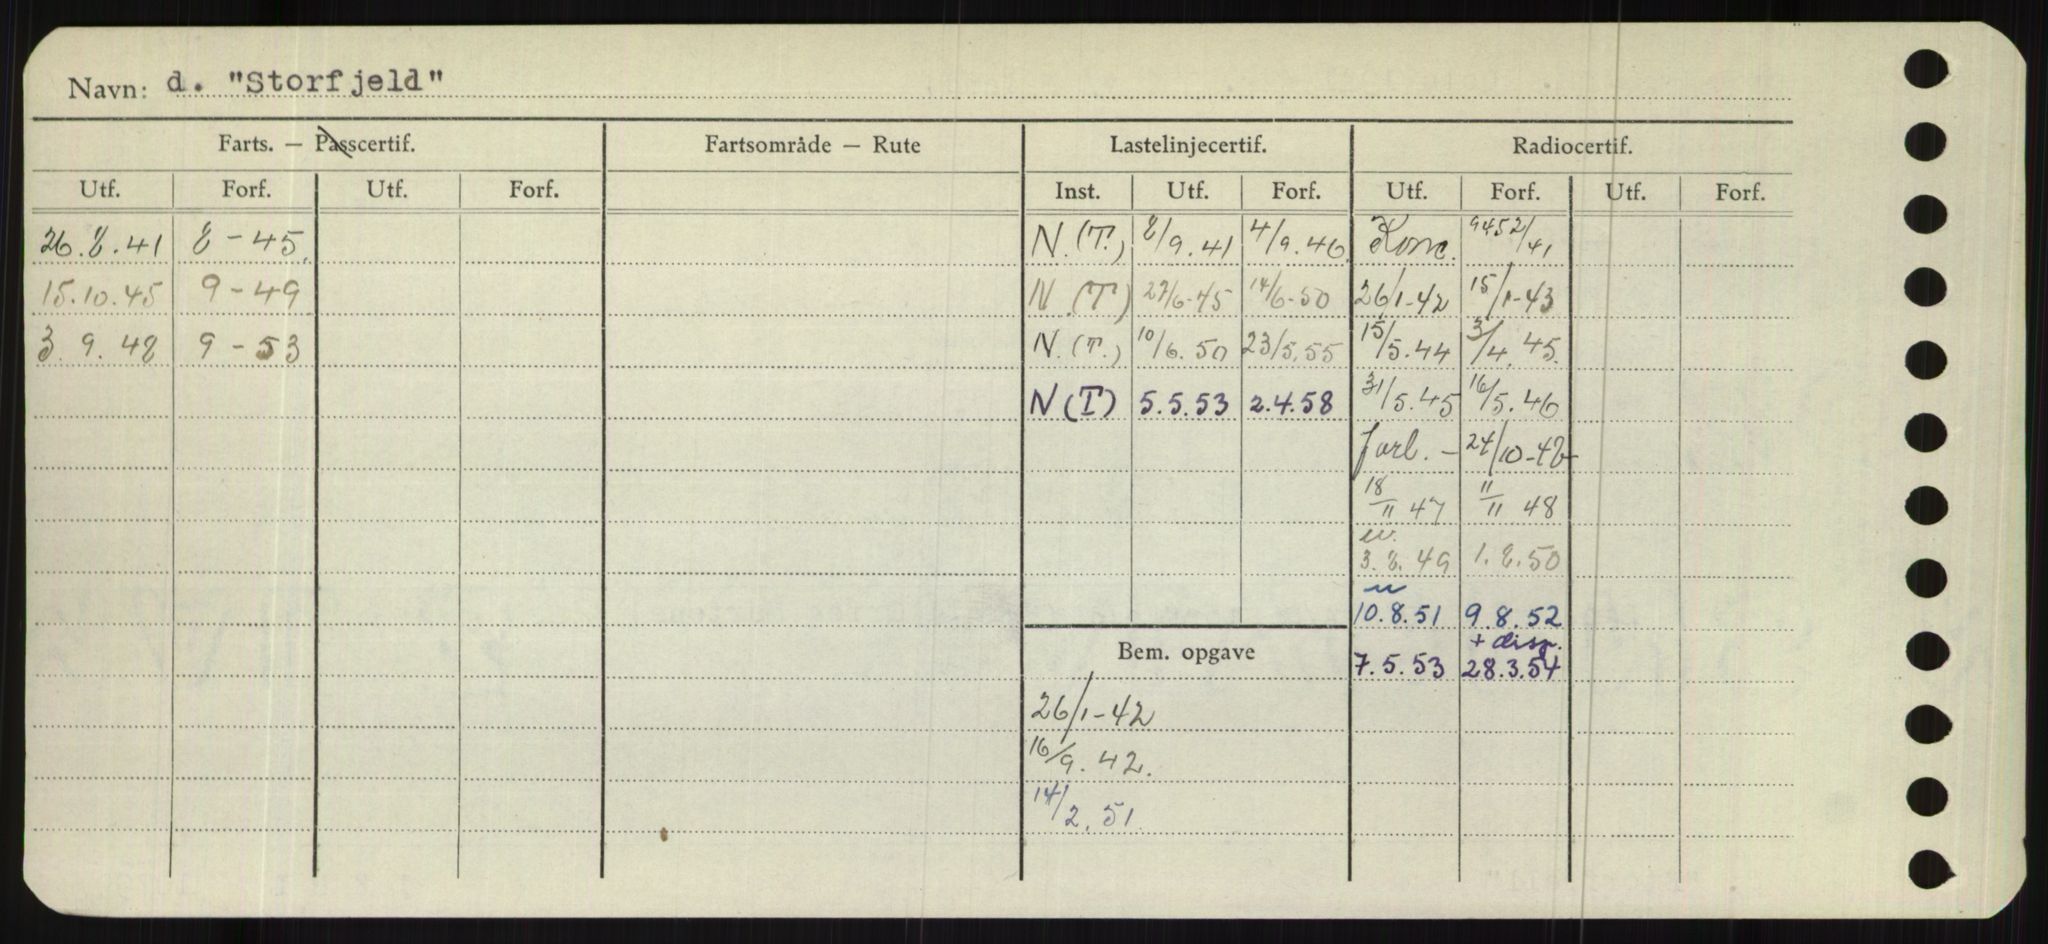 Navn: d. "Storfjeld"
Farts. — Passcertif. Fartsområde — Rute Lastelinjecertif. Radiocertif.
Utf. Forf. Utf. Forf. Inst. Utf. Forf. Utf. Forf. Utf. Forf.
26.8.41 8-45. N.(T.) 8/9.41 4/9.46. Konc. 9452/41
15.10.45 9-49 N.(T) 27/6-45 14/6-50 26/1-42 15/1-43
3.9.48 9-53 N.(T.) 10/6.50 23/5.55 15/5.44 3/4.45.
N(T) 5.5.53 2.4.58 31/5.45 16/5.46
forl. - 24/10-46
18/11 47 11/11 48
3.8.49 1.8.50
10.8.51 9.8.52
Bem. opgave + disp.
7.5.53 28.3.54
26/1-42
16/9.42.
14/2.51.